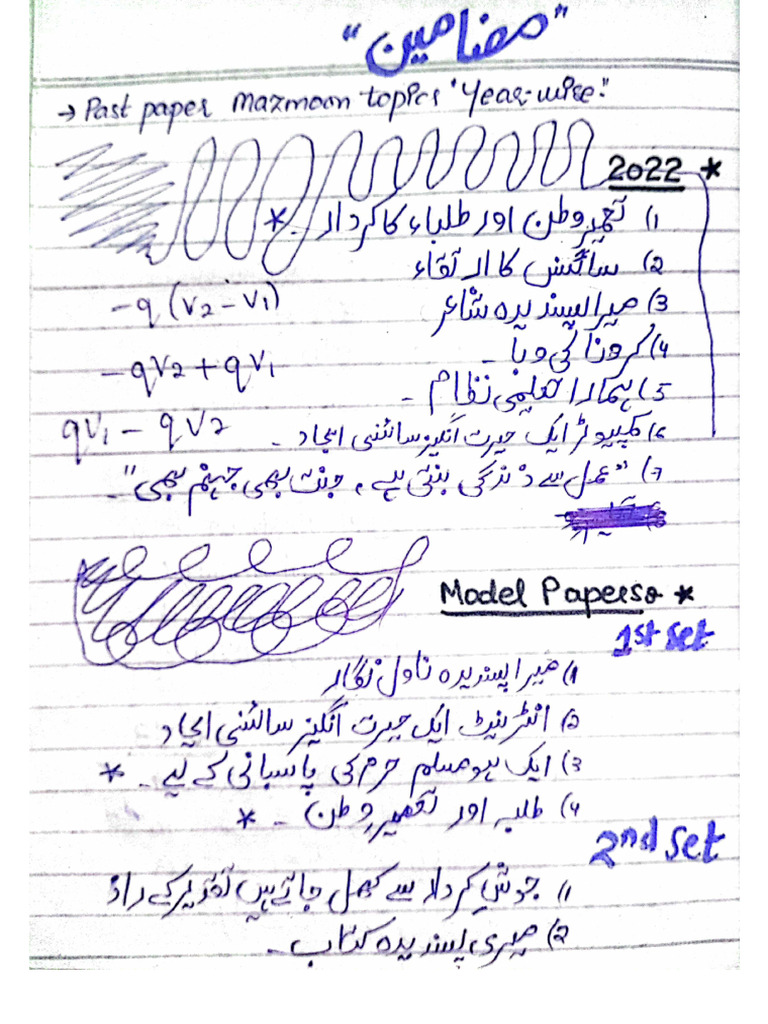 "مضامین"
→ Past paper Mazmoon topics "Year-wise."
2022 *
1) تعمیرِ وطن اور طلباء کا کردار ۔ *
2) سائنس کا ارتقاء
-q(v2-v1)
3) میرا پسندیدہ شاعر
4) کرونا کی وبا ۔
-qv2+qv1
5) ہمارا تعلیمی نظام ۔
qv1 - qv2
6) کمپیوٹر ایک حیرت انگیز سائنسی ایجاد ۔
7) "عمل سے زندگی بنتی ہے، جنت بھی جہنم بھی" ۔
Model Papers *
1st set
1) میرا پسندیدہ ناول نگار
2) انٹرنیٹ ایک حیرت انگیز سائنسی ایجاد
3) ایک ہو مسلم حرم کی پاسبانی کے لیے ۔ *
4) طلبہ اور تعمیرِ وطن ۔ *
2nd set
1) جوشِ کردار سے کھل جاتے ہیں تقدیر کے راز
2) میری پسندیدہ کتاب ۔